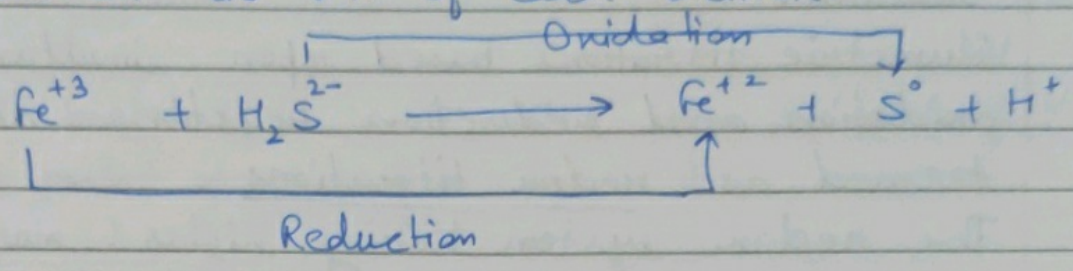 Oxidation
Fe⁺³ + H₂S²⁻ ⟶ Fe⁺² + S⁰ + H⁺
Reduction